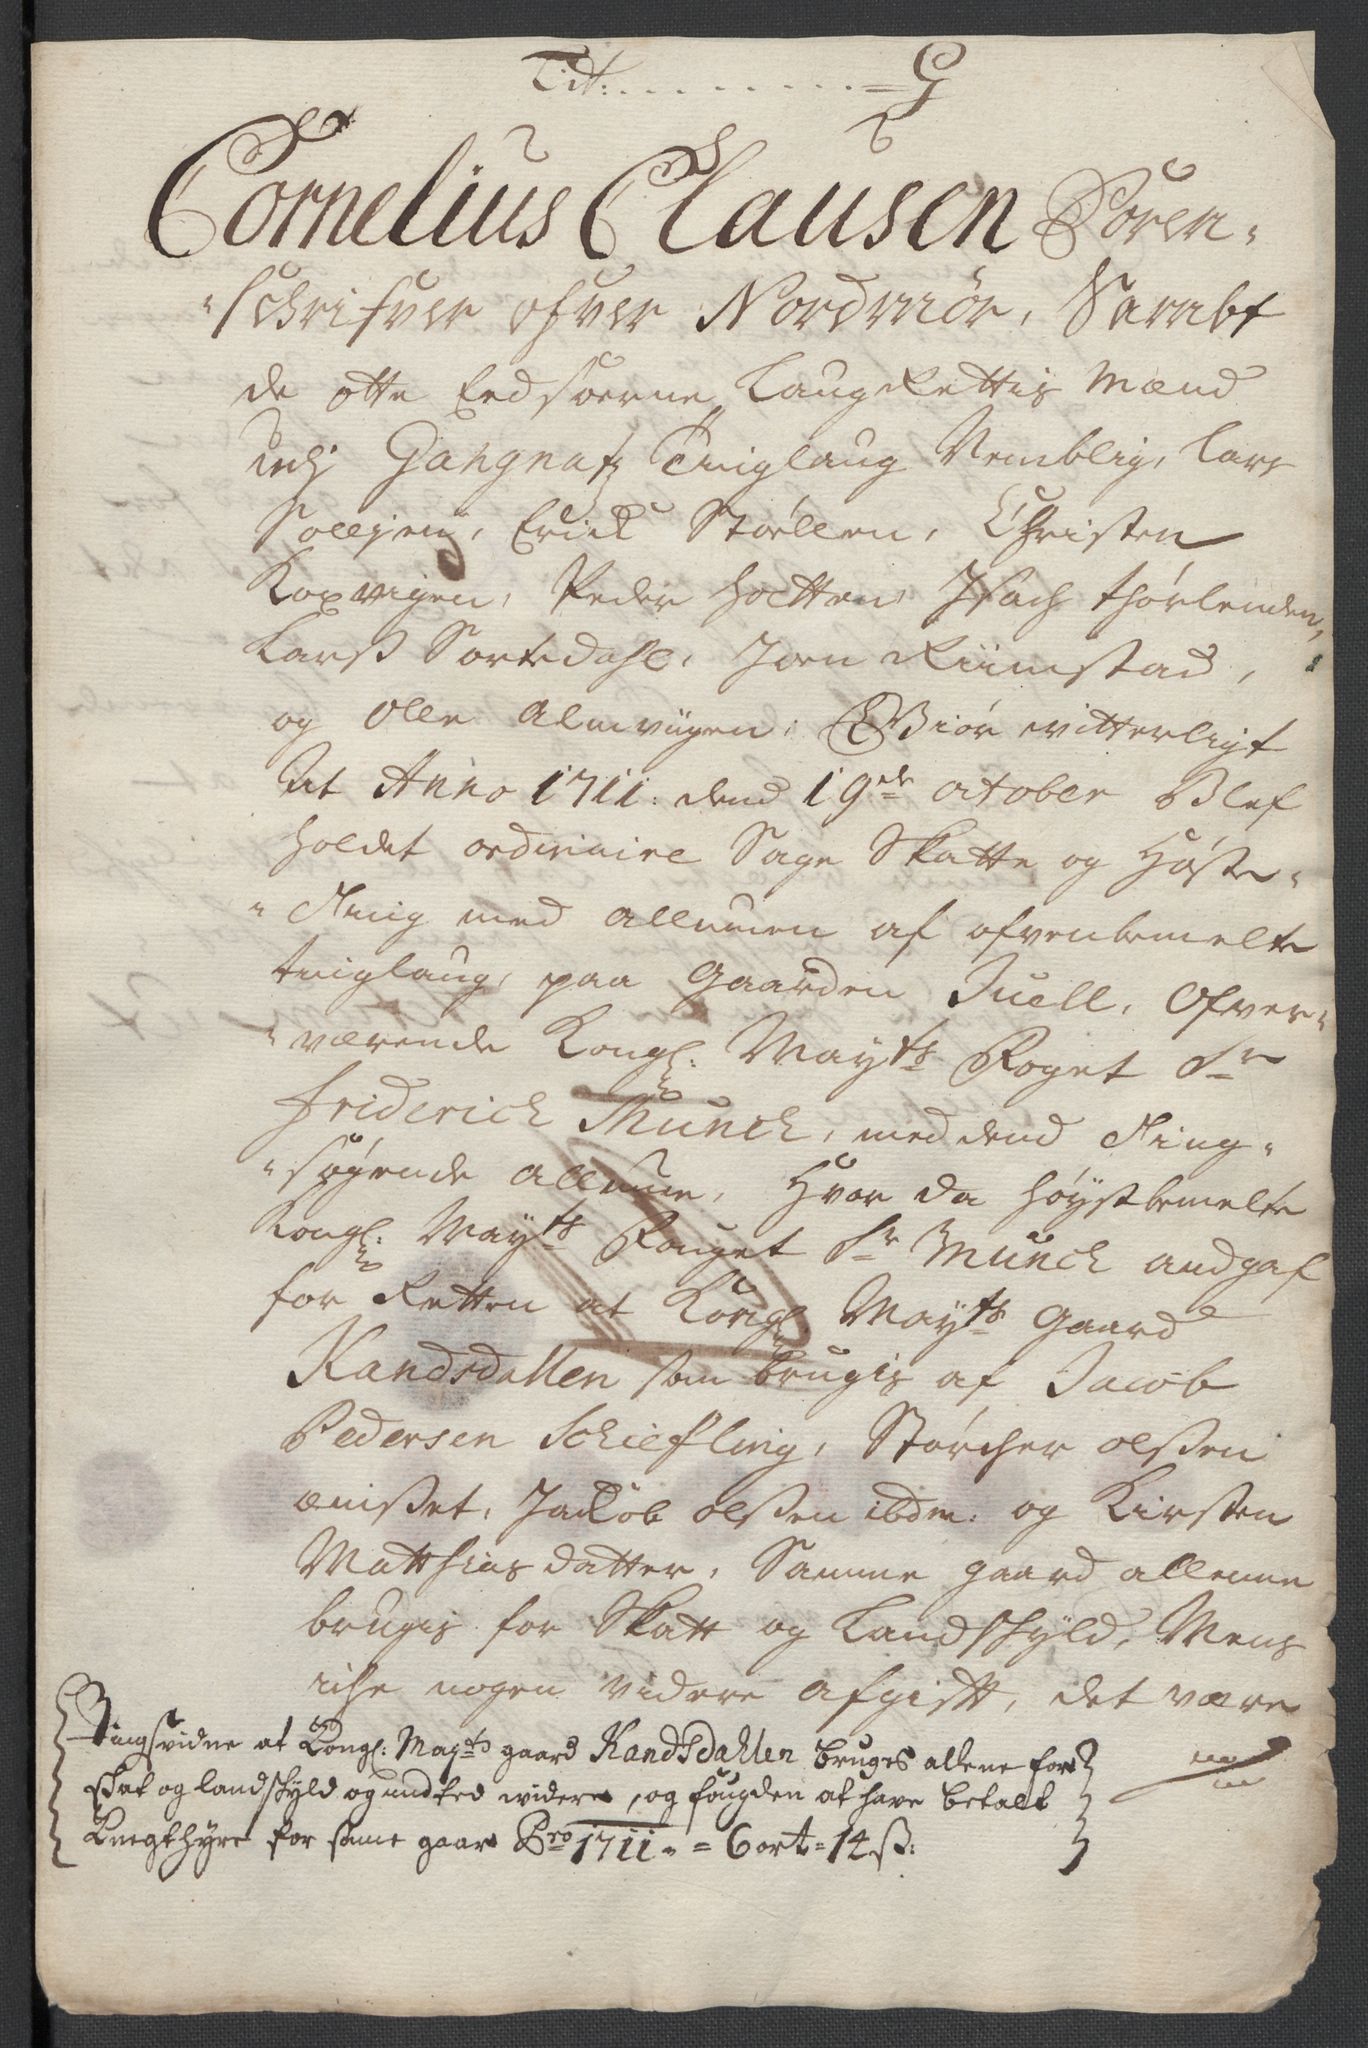 Lit: . . . . . . . . . = G
Cornelius Clausen Soren-
-schrifver ofver Nordmør, Sambt
de otte Eedsoerne LaugRettis Mænd
udj Gangnaf Tinglaug Nemblig, Lars
Sollgen, Erick Stoellen, Christen
Koxvigen, Peder Holtten, Isach thørlenden,
Larß Sortedahl, Joen Riimstad,
og Olle Almviigen, Giør vitterligt
At Anno 1711: dend 19de October Blef
holdet ordinaire Sage Skatte og Høste-
-Ting med allmuen af ofvenbemelte
tinglaug, paa Gaarden Juell, Ofver-
-værende Kongl: Mayts Foget Sr
Friderich Munch, med dend Ting-
-søgende allmue, Hvor da høystbemelte
Kongl: Mayts Fouget Sr Munch andgaf
for Retten at Kongl: Mayts Gaard
Randsdallen som brugis af Jacob
Pedersen Schiefling, Størcher olßen
ænißet, Jackob olßen ibdm: og Kirsten
Matthias datter, Samme gaard allenne
brugis for Skatt og Landschyld, Mens
iche nogen videre afgift, det være
Tingsvidne at Kongl: Mayts gaard Randsdahlen bruges allene for
Skat og landschyld og inted widere, og fougden at have betalt
Knegthyre for same gaar Pro 1711 - = 6 ort = 14 ß: